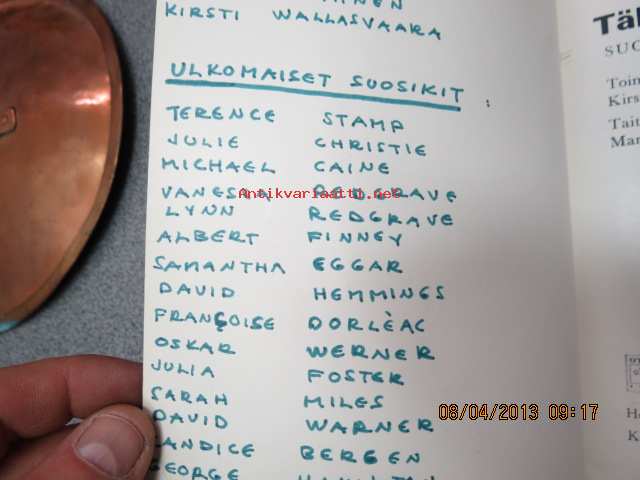 KIRSTI WALLASVAARA
ULKOMAISET SUOSIKIT :
TERENCE STAMP
JULIE CHRISTIE
MICHAEL CAINE
VANESSA REDGRAVE
Antikvariaatti.net
LYNN REDGRAVE
ALBERT FINNEY
SAMANTHA EGGAR
DAVID HEMMINGS
FRANÇOISE DORLÈAC
OSKAR WERNER
JULIA FOSTER
SARAH MILES
DAVID WARNER
CANDICE BERGEN
GEORGE
Täh
SUO
Toim
Kirs
Tait
Mar
08/04/2013 09:17